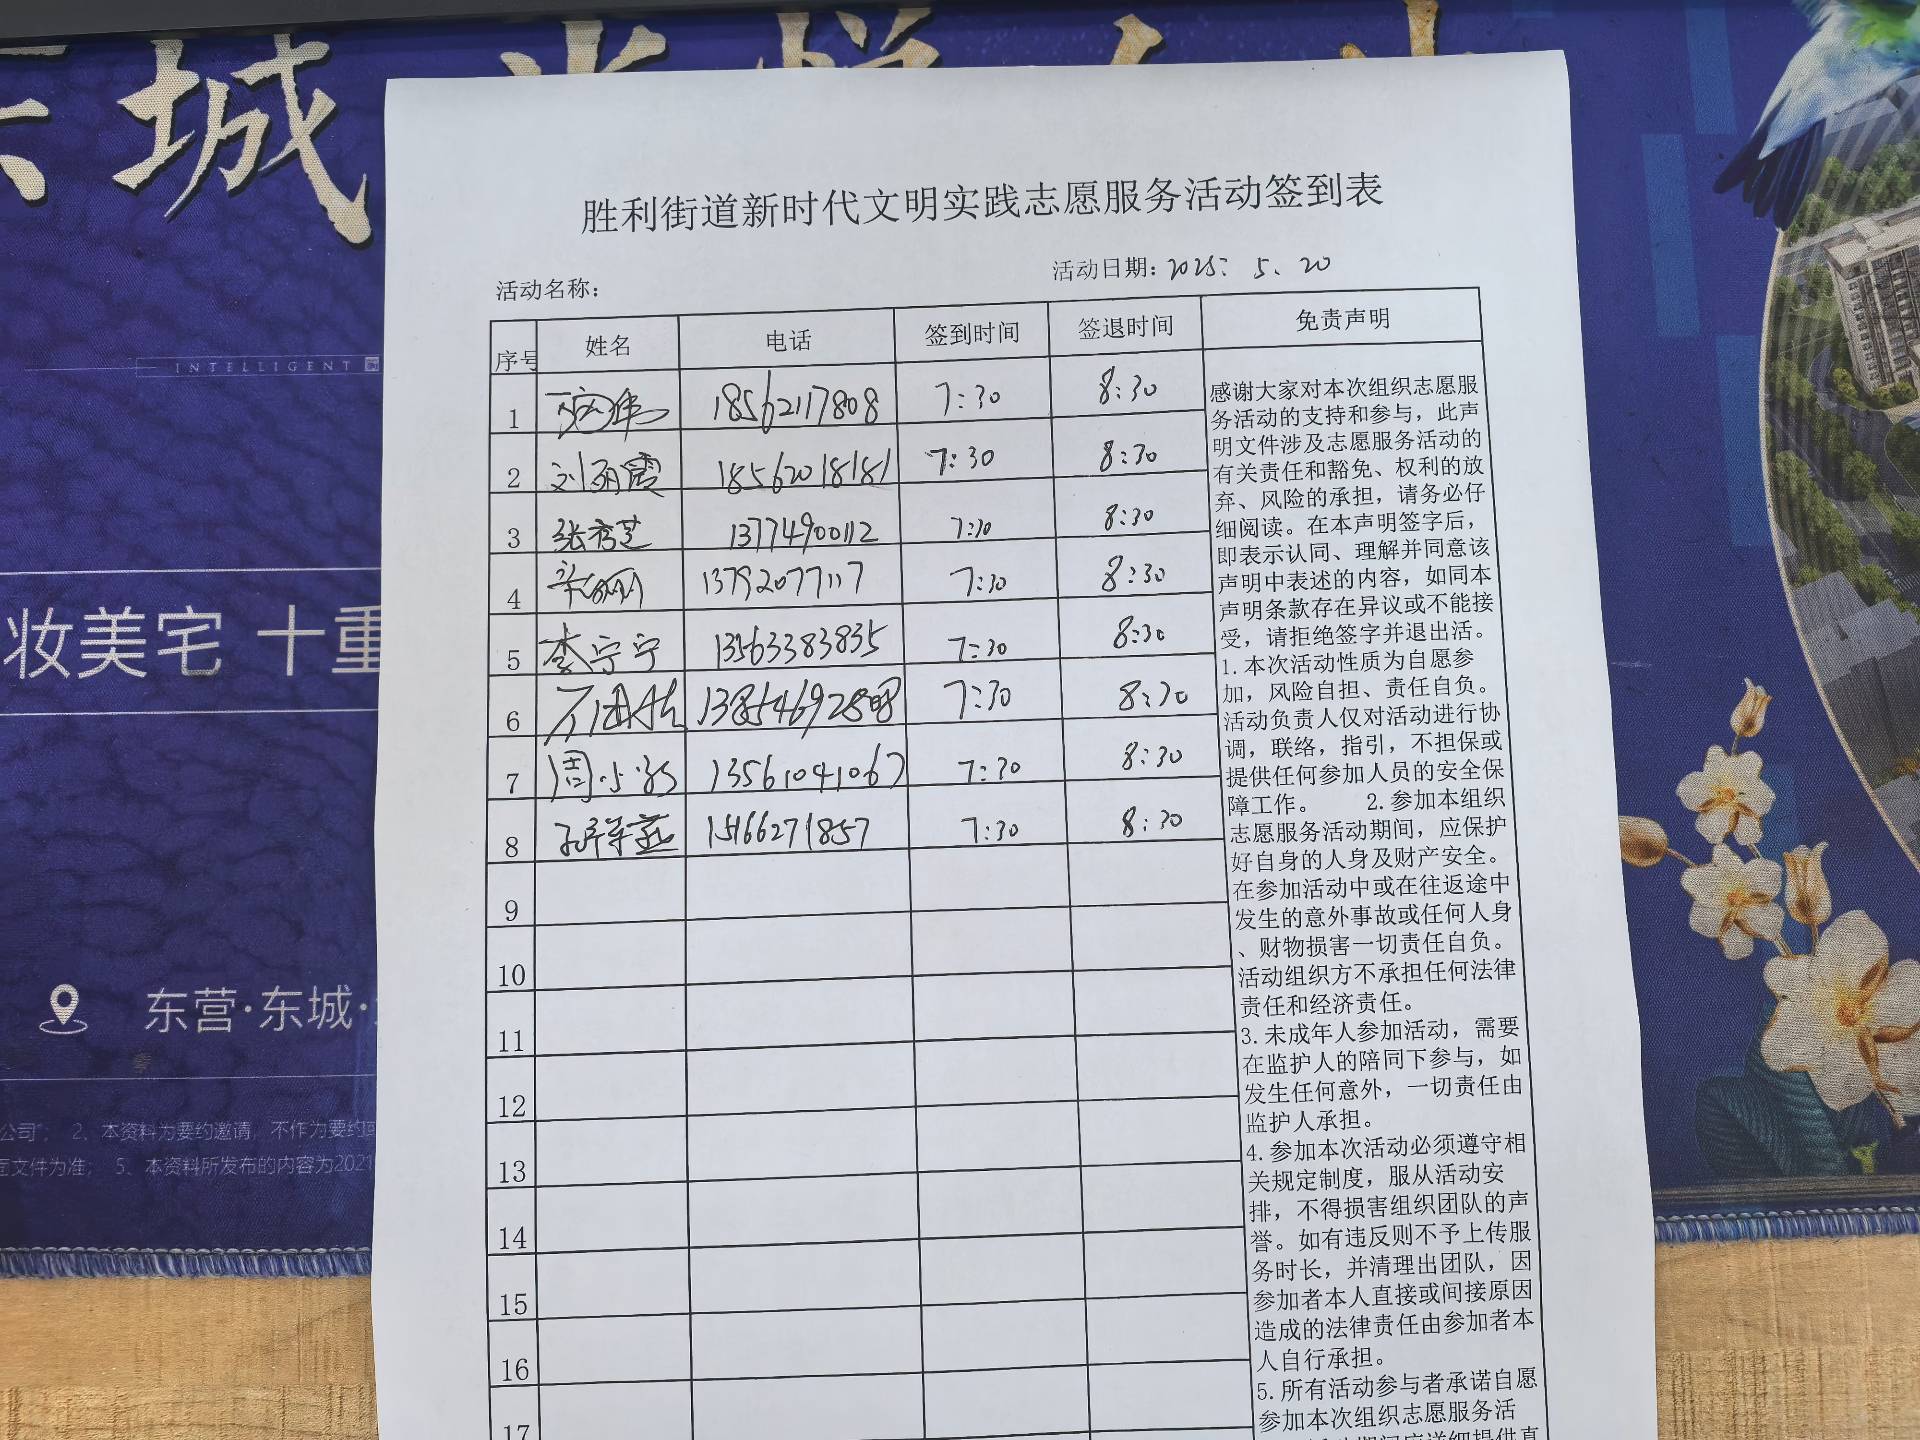 东城
INTELLIGENT
妆美宅 十重
东营·东城·
公司"； 2、本资料为要约邀请，不作为要约
文件为准； 5、本资料所发布的内容为2021
胜利街道新时代文明实践志愿服务活动签到表
活动名称：
活动日期：2025. 5. 20
序号 姓名 电话 签到时间 签退时间 免责声明
1 18562117808 7:30 8:30
2 刘丽霞 18562018181 7:30 8:30
3 张秀芝 13774900112 7:30 8:30
4 13792077117 7:30 8:30
5 李宁宁 13563383835 7:30 8:30
6 7:30 8:30
7 周小 13561041067 7:30 8:30
8 15166271857 7:30 8:30
9
10
11
12
13
14
15
16
17
感谢大家对本次组织志愿服
务活动的支持和参与，此声
明文件涉及志愿服务活动的
有关责任和豁免、权利的放
弃、风险的承担，请务必仔
细阅读。在本声明签字后，
即表示认同、理解并同意该
声明中表述的内容，如同本
声明条款存在异议或不能接
受，请拒绝签字并退出活。
1.本次活动性质为自愿参
加，风险自担、责任自负。
活动负责人仅对活动进行协
调，联络，指引，不担保或
提供任何参加人员的安全保
障工作。 2.参加本组织
志愿服务活动期间，应保护
好自身的人身及财产安全。
在参加活动中或在往返途中
发生的意外事故或任何人身
、财物损害一切责任自负。
活动组织方不承担任何法律
责任和经济责任。
3.未成年人参加活动，需要
在监护人的陪同下参与，如
发生任何意外，一切责任由
监护人承担。
4.参加本次活动必须遵守相
关规定制度，服从活动安
排，不得损害组织团队的声
誉。如有违反则不予上传服
务时长，并清理出团队，因
参加者本人直接或间接原因
造成的法律责任由参加者本
人自行承担。
5.所有活动参与者承诺自愿
参加本次组织志愿服务活